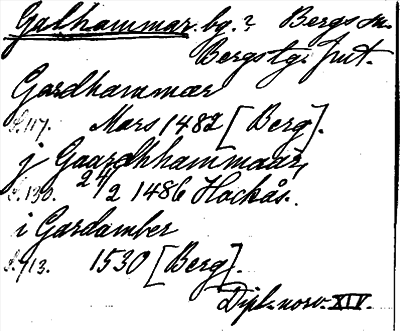 Galhammar, by.? Bergs sn.
Bergs tg. Jmt.
Gardhammær
S.117. Mars 1482 [Berg].
j Gaardhhammaar,
S.130. 24/2 1486 Hackås.
i Gardamber
S. 713. 1530 [Berg].
Dipl. norv. XIV.